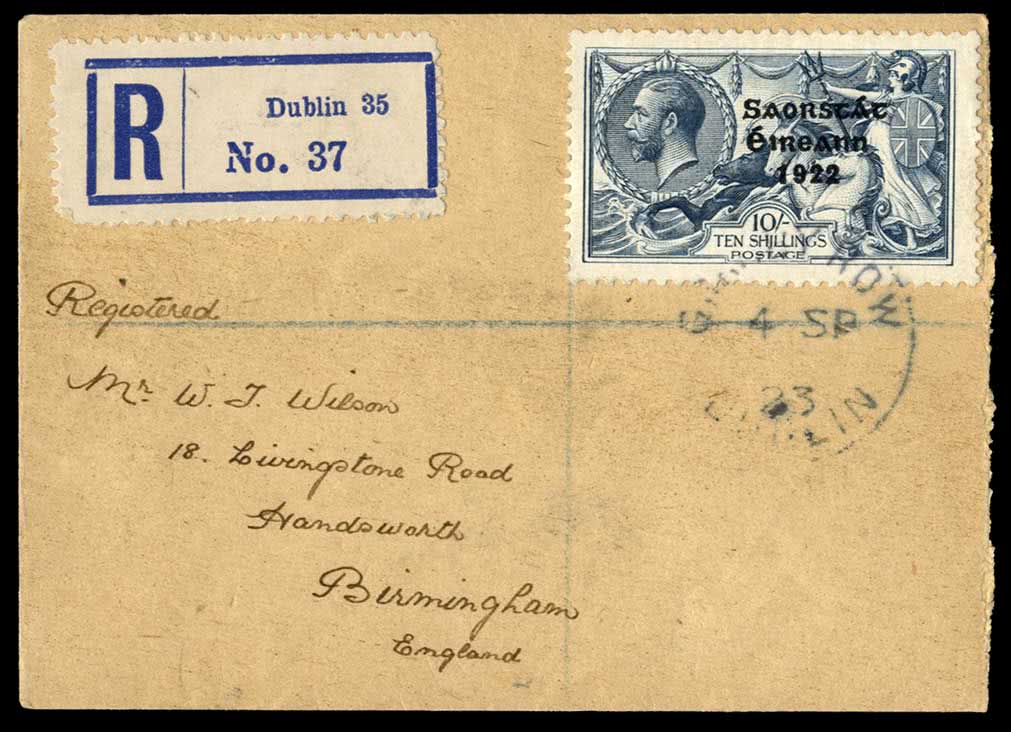 R
Dublin 35
No. 37
Saorstát
Éireann
1922
10/-
TEN SHILLINGS
POSTAGE
4 SP
23
Registered
Mr. W. J. Wilson
18. Livingstone Road
Handsworth
Birmingham
England